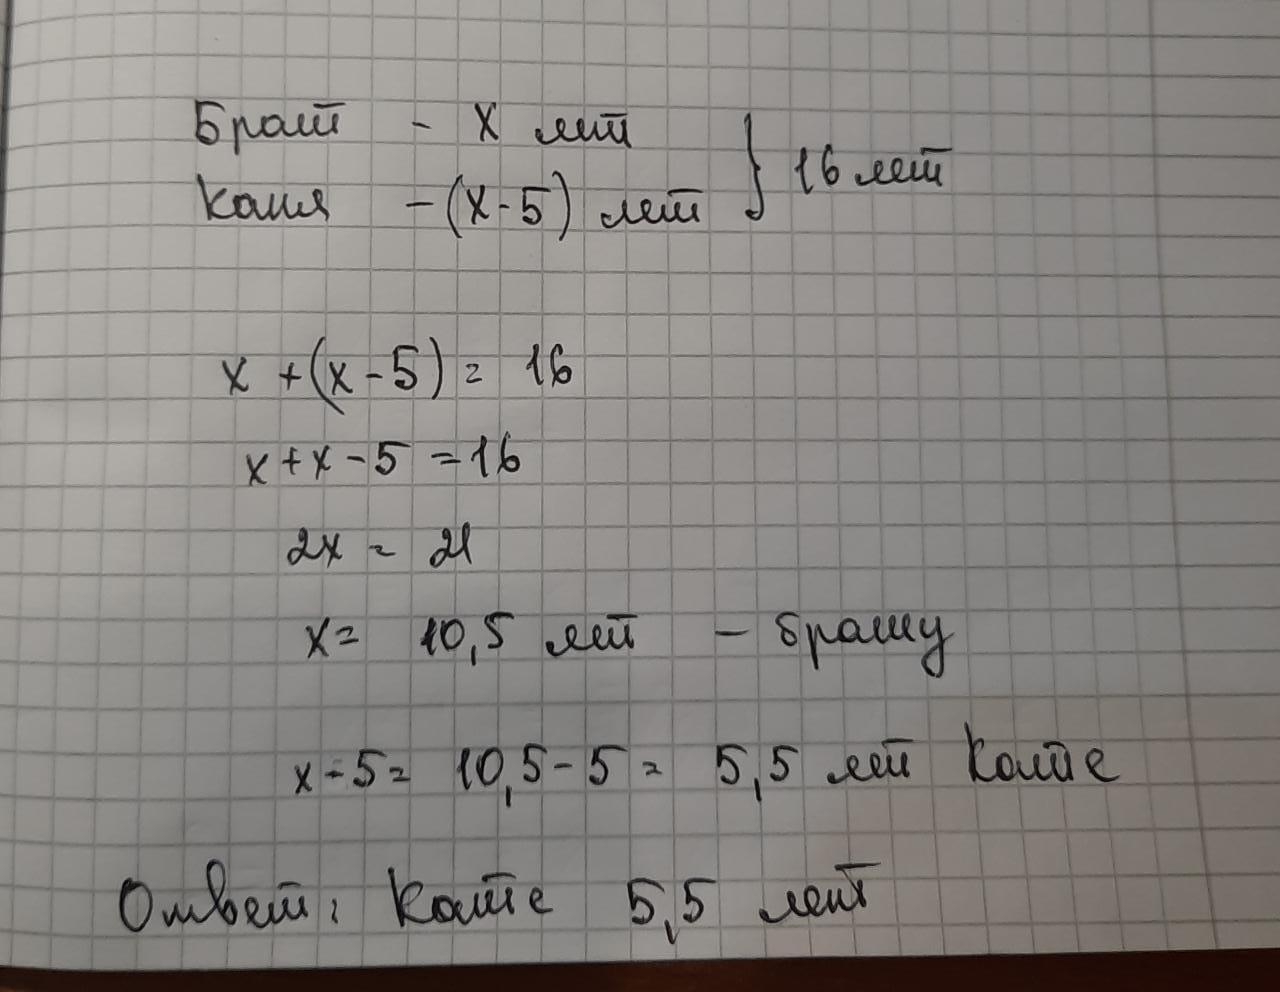 Брат - х лет
Катя - (х-5) лет } 16 лет
х + (х-5) = 16
х + х - 5 = 16
2х = 21
х = 10,5 лет - брату
х - 5 = 10,5 - 5 = 5,5 лет Кате
Ответ: Кате 5,5 лет